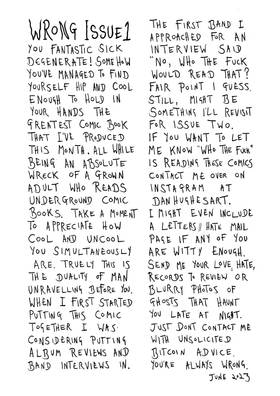 WRONG ISSUE 1
YOU FANTASTIC SICK
DEGENERATE! SOMEHOW
YOU'VE MANAGED TO FIND
YOURSELF HIP AND COOL
ENOUGH TO HOLD IN
YOUR HANDS THE
GREATEST COMIC BOOK
THAT I'VE PRODUCED
THIS MONTH. ALL WHILE
BEING AN ABSOLUTE
WRECK OF A GROWN
ADULT WHO READS
UNDERGROUND COMIC
BOOKS. TAKE A MOMENT
TO APPRECIATE HOW
COOL AND UNCOOL
YOU SIMULTANEOUSLY
ARE. TRULY THIS IS
THE DUALITY OF MAN
UNRAVELLING BEFORE YOU.
WHEN I FIRST STARTED
PUTTING THIS COMIC
TOGETHER I WAS
CONSIDERING PUTTING
ALBUM REVIEWS AND
BAND INTERVIEWS IN.
THE FIRST BAND I
APPROACHED FOR AN
INTERVIEW SAID
"NO, WHO THE FUCK
WOULD READ THAT?
FAIR POINT I GUESS.
STILL, MIGHT BE
SOMETHING I'LL REVISIT
FOR ISSUE TWO.
IF YOU WANT TO LET
ME KNOW "WHO THE FUCK"
IS READING THESE COMICS
CONTACT ME OVER ON
INSTAGRAM AT
DANHUGHESART.
I MIGHT EVEN INCLUDE
A LETTERS// HATE MAIL
PAGE IF ANY OF YOU
ARE WITTY ENOUGH.
SEND ME YOUR LOVE, HATE,
RECORDS TO REVIEW OR
BLURRY PHOTOS OF
GHOSTS THAT HAUNT
YOU LATE AT NIGHT.
JUST DONT CONTACT ME
WITH UNSOLICITED
BITCOIN ADVICE.
YOU'RE ALWAYS WRONG.
JUNE 2023